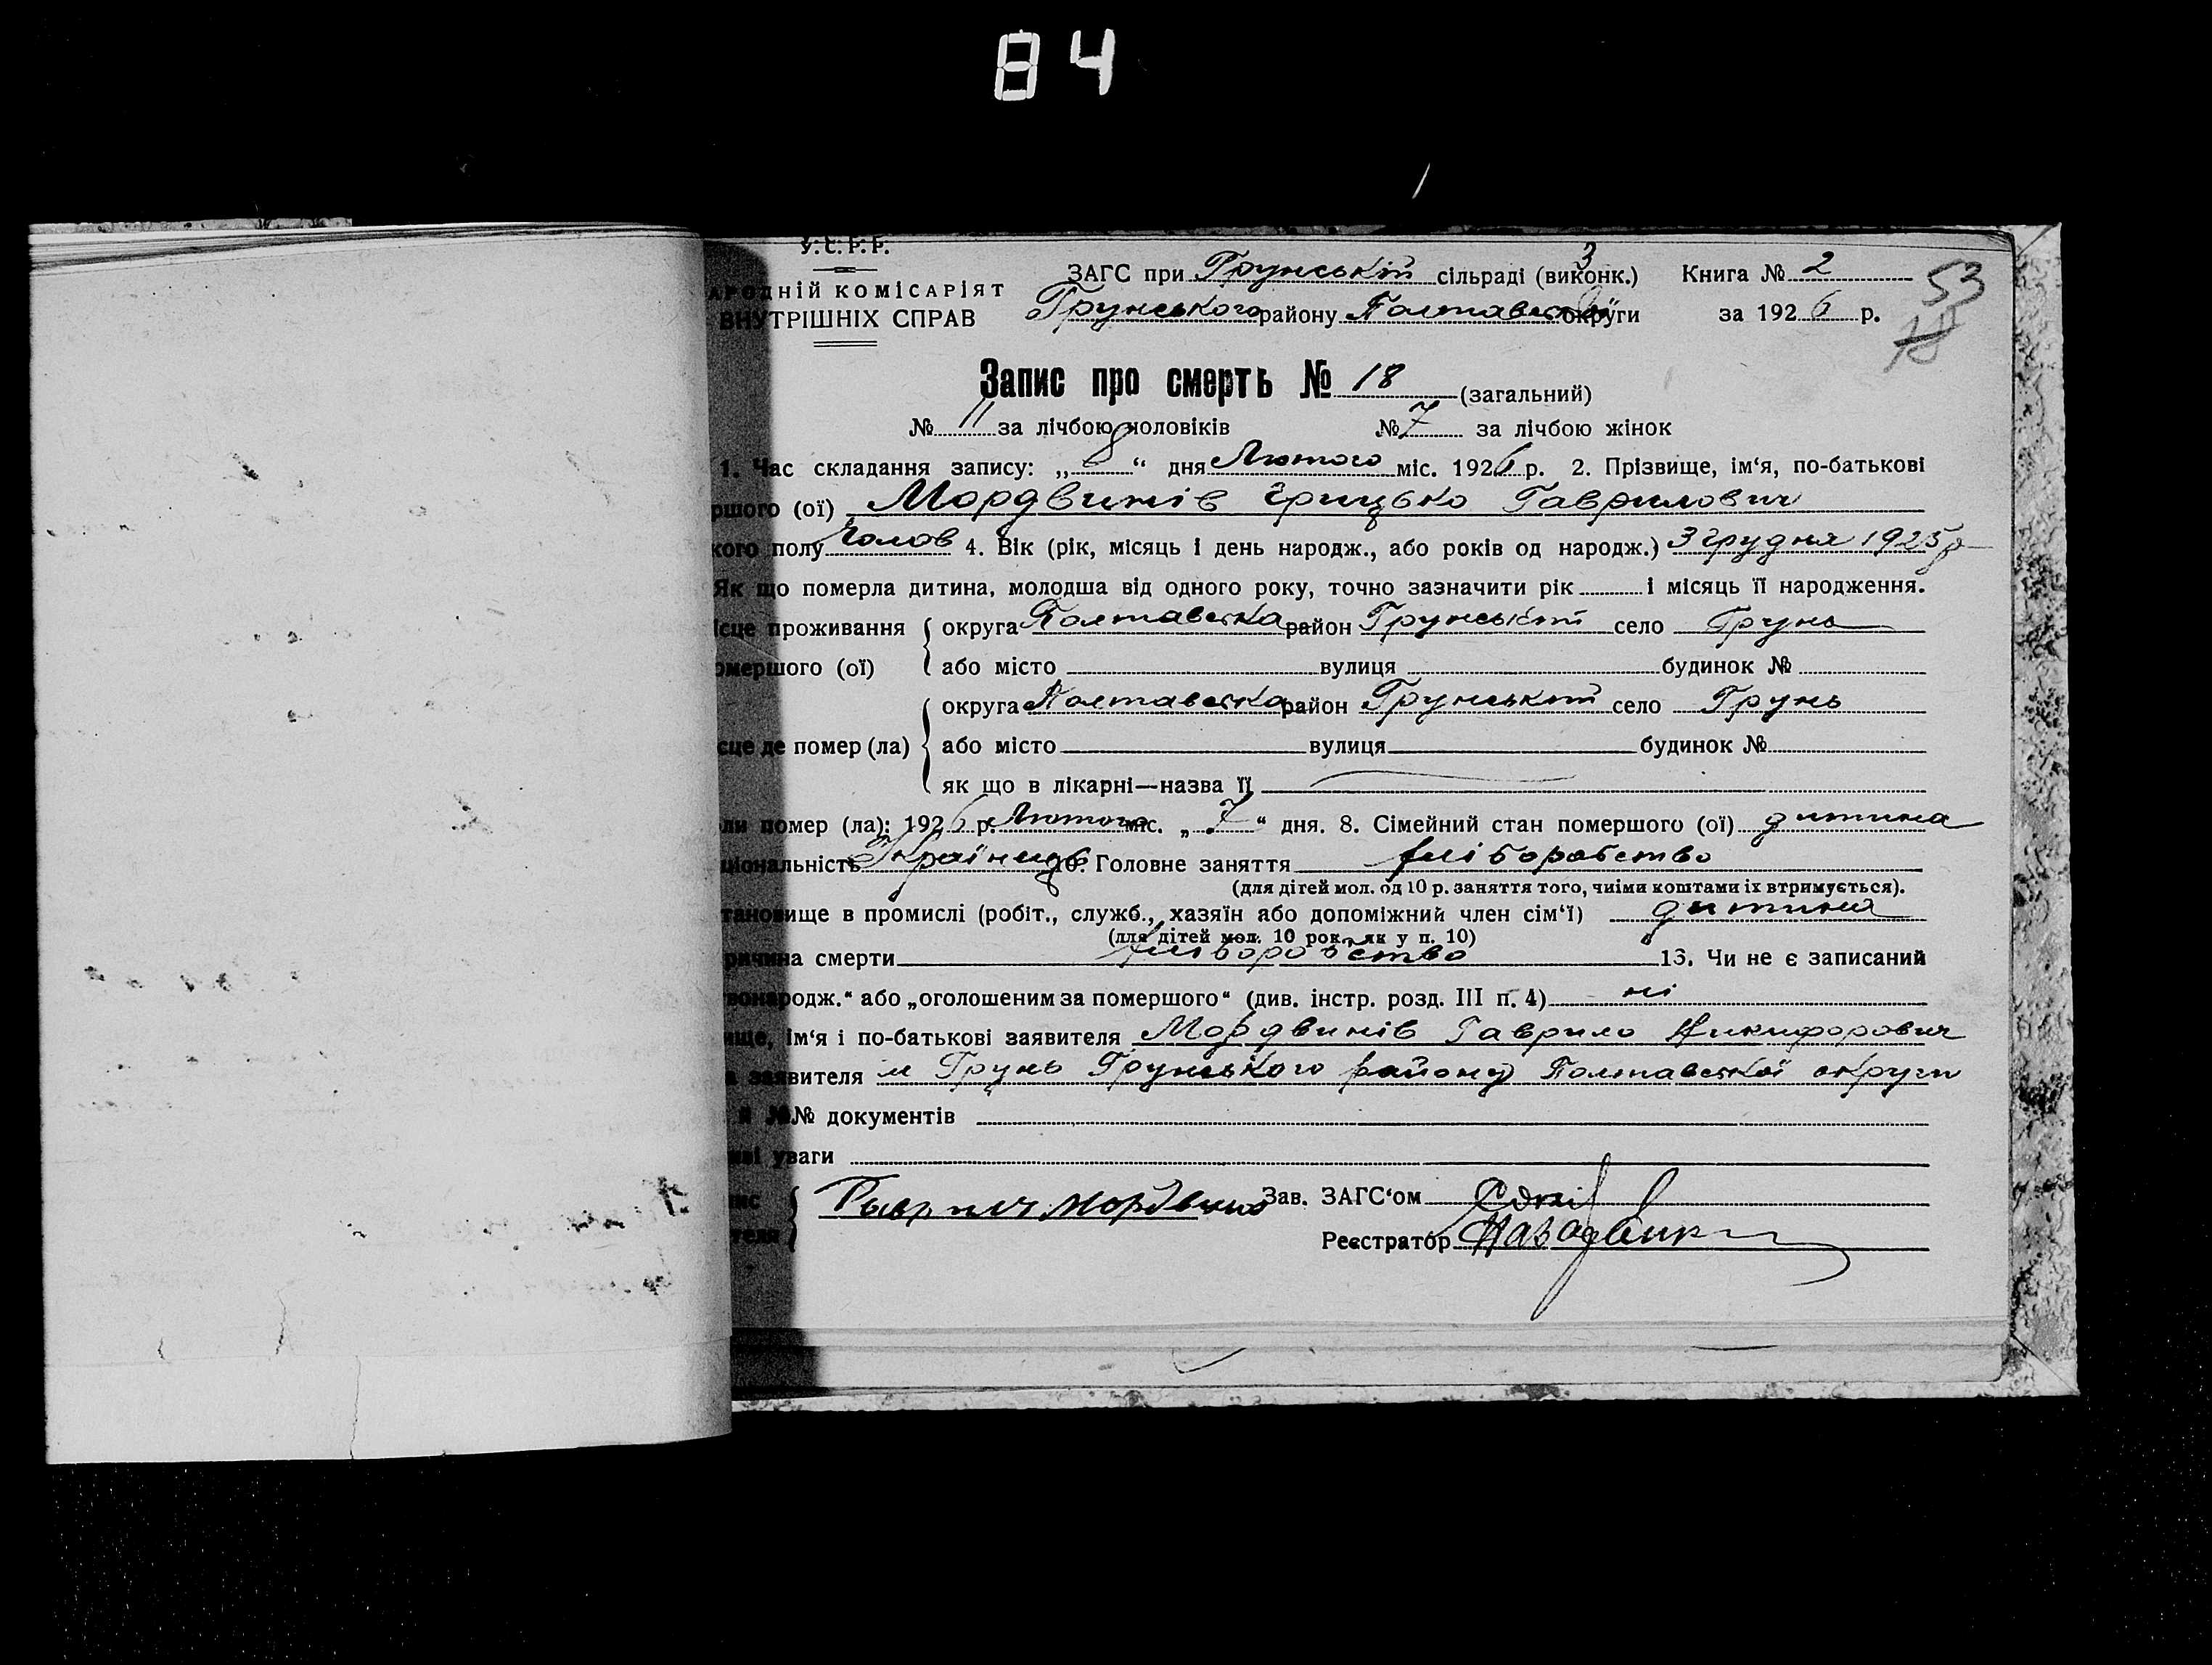 84
У.С.Р.Р.
АРОДНІЙ КОМІСАРІЯТ
ВНУТРІШНІХ СПРАВ
ЗАГС при Грунській сільраді (виконк.) 3 Книга № 2
Грунського району Полтавської округи за 1926 р.
53
Запис про смерть № 18 (загальний)
№ 11 за лічбою чоловіків № 7 за лічбою жінок
1. Час складання запису: „8“ дня Лютого міс. 1926 р. 2. Прізвище, ім‘я, по-батькові
ршого (ої) Мордвинів Грицько Гаврилович
кого полу Чолов 4. Вік (рік, місяць і день народж., або років од народж.) 3 грудня 1925 р
Як що померла дитина, молодша від одного року, точно зазначити рік і місяць її народження.
ісце проживання округа Полтавська район Грунський село Грунь
омершого (ої) або місто вулиця будинок №
округа Полтавська район Грунський село Грунь
сце де помер (ла) або місто вулиця будинок №
як що в лікарні—назва її
ли помер (ла): 1926 р. Лютого міс. „7“ дня. 8. Сімейний стан помершого (ої) дитина
ціональність Українець 10. Головне заняття хліборобство
(для дітей мол. од 10 р. заняття того, чиїми коштами їх втримується).
тановище в промислі (робіт., служб., хазяїн або допоміжний член сім‘ї) дитина
(для дітей мол. 10 рок. як у п. 10)
ричина смерти хліборобство 13. Чи не є записаний
вонародж.“ або „оголошеним за помершого“ (див. інстр. розд. III п. 4) ні
ище, ім‘я і по-батькові заявителя Мордвинів Гаврило Никифорович
а заявителя м Грунь Грунського району Полтавської округи
й №№ документів
иві уваги
ис
теля
Зав. ЗАГС‘ом
Реєстратор